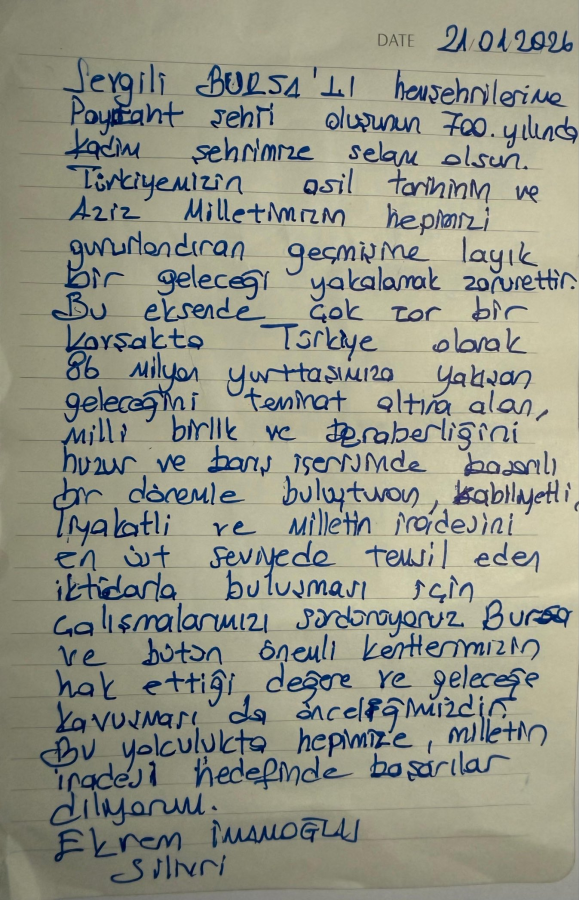 DATE 21.01.2026
Sevgili BURSA'LI hemşehrilerime
Payitaht şehri oluşunun 700. yılında
kadim şehrimize selam olsun.
Türkiyemizin asil tarihinin ve
Aziz Milletimizin hepimizi
gururlandıran geçmişine layık
bir geleceği yakalamak zorunettir.
Bu eksende çok zor bir
kavşakta Türkiye olarak
86 Milyon yurttaşımıza yakışan
geleceğini teminat altına alan,
milli birlik ve beraberliğini
huzur ve barış içerisinde başarılı
bir dönemle buluşturan, kabiliyetli,
liyakatli ve milletin iradesini
en üst seviyede temsil eden
iktidarla buluşması için
çalışmalarımızı sürdürüyoruz Bursa
ve bütün önemli kentlerimizin
hak ettiği değere ve geleceğe
kavuşması da önceliğimizdir.
Bu yolculukta hepimize, milletin
iradesi hedefinde başarılar
diliyorum.
Ekrem İMAMOĞLU
Silivri